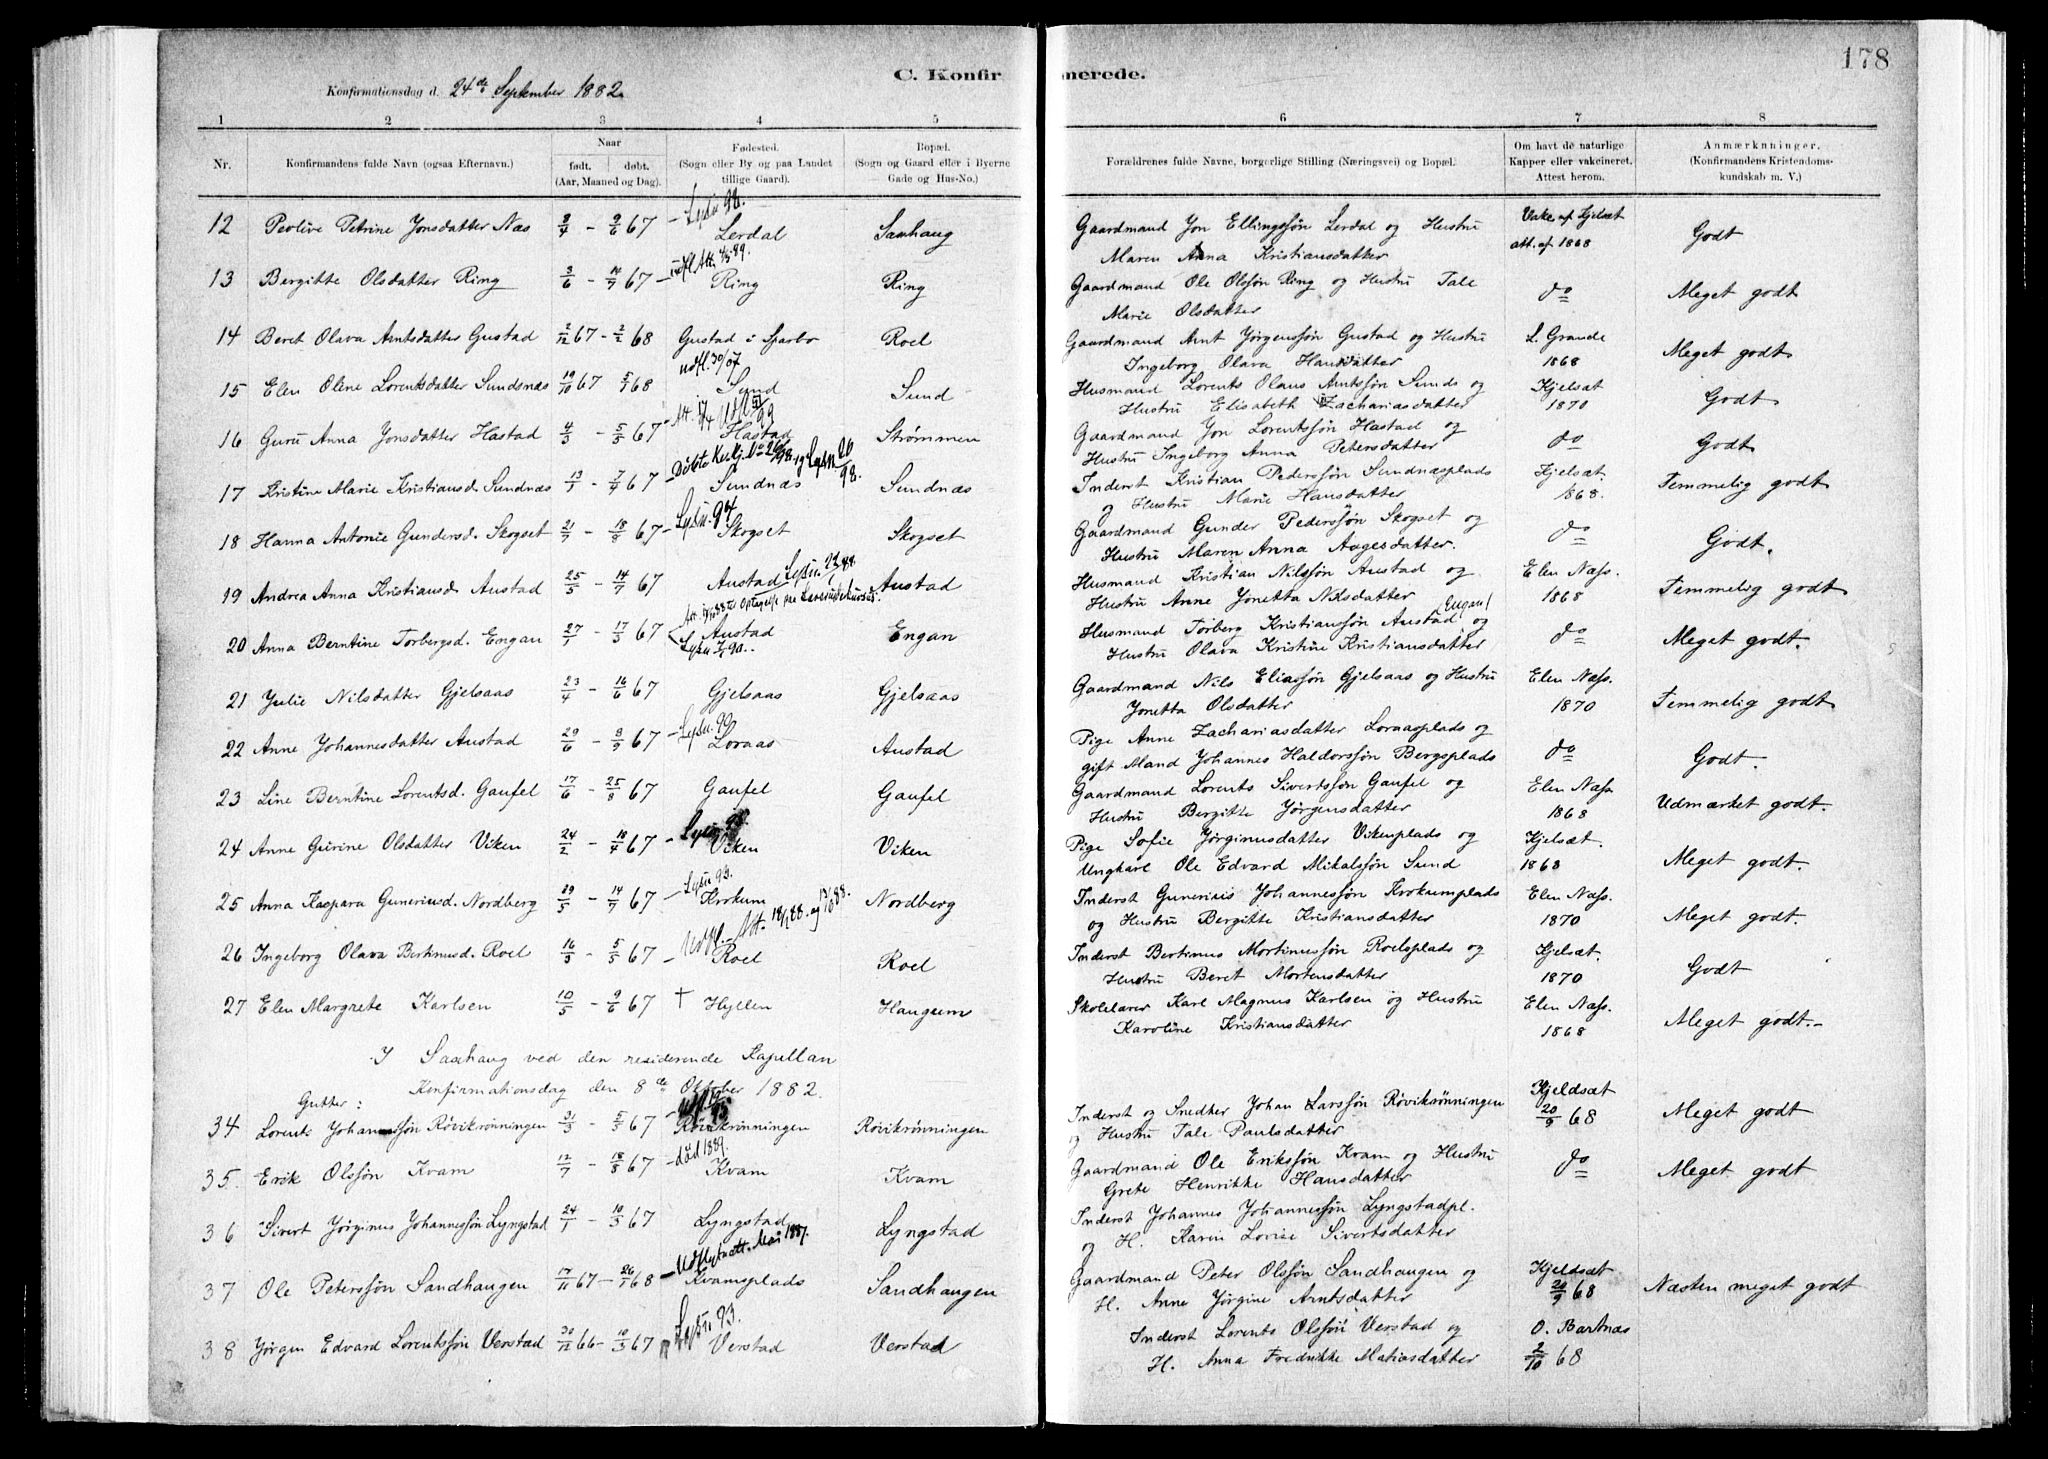 178
C. Konfirmerede.
Konfirmationsdag d. 24de September 1882.
1 2 3 4 5 6 7 8
Nr. Konfirmandens fulde Navn (ogsaa Efternavn.) Naar født. døbt. (Aar, Maaned og Dag). Fødested. (Sogn eller By og paa Landet tillige Gaard). Bopæl. (Sogn og Gaard eller i Byerne Gade og Hus-No.) Forældrenes fulde Navne, borgerlige Stilling (Næringsvei) og Bopæl. Om havt de naturlige Kopper eller vakcineret. Attest herom. Anmærkninger. (Konfirmandens Kristendomskundskab m. V.)
12 Peoline Petrine Jonsdatter Næs 3/4 – 9/6 67 – Lysn. 92. Lerdal Saxhaug Gaardmand Jon Ellingssøn Lerdal og Hustru Vakc. af Kjelsæt Godt
Maren Anna Kristiansdatter att. af 1868
13 Bergitte Olsdatter Ring 3/6 – 14/7 67 – Ring Ring Gaardmand Ole Olssøn Ring og Hustru Tale do Meget godt
Marie Olsdatter
14 Beret Olava Arntsdatter Gustad 2/12 67 – 2/2 68 Gustad i Sparbo Roel Gaardmand Arnt Jørgenssøn Gustad og Hustru L. Grande Meget godt
Ingeborg Olava Hansdatter 1868
15 Elen Oline Lorentsdatter Sundsnæs 19/10 67 5/1 68 udfl. 30/07 Sund Sund Husmand Lorents Olaus Arntssøn Sunds og Kjelsæt Godt
Hustru Elisabeth Zachariasdatter 1870
16 Guru Anna Jonsdatter Hastad 4/3 – 5/5 67 Hastad Strømmen Gaardmand Jon Lorentssøn Hastad og do Godt
Hustru Ingeborg Anna Petersdatter
17 Kristine Marie Kristiansd. Sundnæs 13/1 – 7/4 67 – Sundnæs Sundnæs Inderst Kristian Pederssøn Sundnæsplads Kjelsæt. Temmelig godt
og Hustru Marie Hansdatter 1868.
18 Hanna Antonie Gundersd. Skogset 21/7 – 18/8 67 – Lysn. 94 Skogset Skogset Gaardmand Gunder Pederssøn Skogset og do Godt.
Hustru Maren Anna Aagesdatter.
19 Andrea Anna Kristiansd. Austad 25/5 – 14/7 67 Austad Austad Husmand Kristian Nilssøn Austad og Elen Næss. Temmelig godt
Hustru Anne Jonetta Nilsdatter 1868
20 Anna Berntine Torbergsd. Engan 27/1 – 17/3 67 Austad Engan Husmand Torberg Kristianssøn Austad (Engan) og do Meget godt.
Hustru Olava Kristine Kristiansdatter
21 Julie Nilsdatter Gjelsaas 23/4 – 16/6 67 Gjelsaas Gjelsaas Gaardmand Nils Eliassøn Gjelsaas og Hustru Elen Næss. Temmelig godt
Jonetta Olsdatter 1870
22 Anne Johannesdatter Austad 29/6 – 8/9 67 – Lysn. 90 Loraas Austad Pige Anne Zachariasdatter Loraasplads og do Godt.
gift Mand Johannes Haldorssøn Bergsplads
23 Line Berntine Lorentsd. Gaufel 17/6 – 25/8 67 Gaufel Gaufel Gaardmand Lorents Sivertssøn Gaufel og Elen Næss Udmærket godt.
Hustru Bergitte Jørgensdatter 1868
24 Anne Gurine Olsdatter Viken 24/2 – 10/4 67 – Viken Viken Pige Sofie Jørginusdatter Vikenplads og Kjelsæt. Meget godt.
Ungkarl Ole Edvard Mikalssøn Sund 1868
25 Anna Kaspara Guneriusd. Nordberg 29/5 – 14/7 67 – Lysn 93. Krokum Nordberg Inderst Gunerius Johannessøn Krokumplads Elen Næss. Meget godt.
og Hustru Bergitte Kristiansdatter 1870
26 Ingeborg Olava Bertinusd. Roel 16/3 – 5/5 67 – Roel Roel Inderst Bertinus Mortinussøn Roelsplads og Kjelsæt. Godt
Hustru Beret Mortensdatter 1870
27 Elen Margrete Karlsen 10/5 – 9/6 67 † Hyllen Haugum Skolelærer Karl Magnus Karlsen og Hustru Elen Næss. Meget godt.
Karoline Kristiansdatter 1868
I Saxhaug ved den residerende Kapellan
Konfirmationsdag den 8de Oktober 1882.
Gutter:
34 Lorents Johanssøn Røvikrønningen 31/3 – 5/5 67 – Røvikrønningen Røvikrønningen Inderst og Snedker Johan Larssøn Røvikrønningen Kjeldsæt Meget godt
og Hustru Tale Paulsdatter 20/9 68
35. Erik Olssøn Kvam 12/7 – 18/8 67 – död 1889. Kvam Kvam Gaardmand Ole Erikssøn Kvam og Hustru do Meget godt
Grete Henrikke Hansdatter
36 Sivert Jørginus Johannessøn Lyngstad 24/1 – 10/3 67 Lyngstad Lyngstad Inderst Johannes Johannessøn Lyngstadpl.
og H. Karen Lovise Sivertsdatter
37 Ole Peterssøn Sandhaugen 17/11 67 – 26/1 68 – Udflytnatt. Mai 1887. Kvamsplads Sandhaugen Gaardmand Peter Olssøn Sandhaugen og Kjeldsæt Næsten meget godt
H. Anne Jørgine Arntsdatter 20/9 68
38 Jørgen Edvard Lorentssøn Verstad 30/12 66 – 10/3 67 Lysn 93. Verstad Verstad Inderst Lorents Olssøn Verstad og O. Bartnæs
H. Anna Fredrikke Matiasdatter 2/10 68